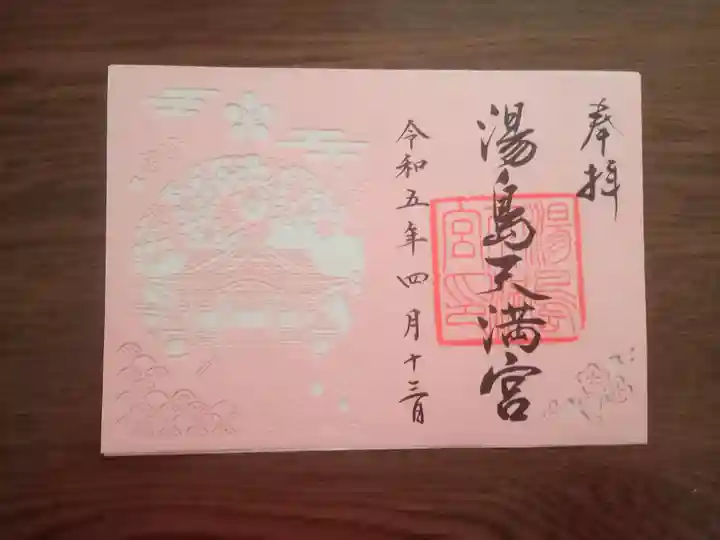 奉拝
湯島天満宮
令和五年四月十三日